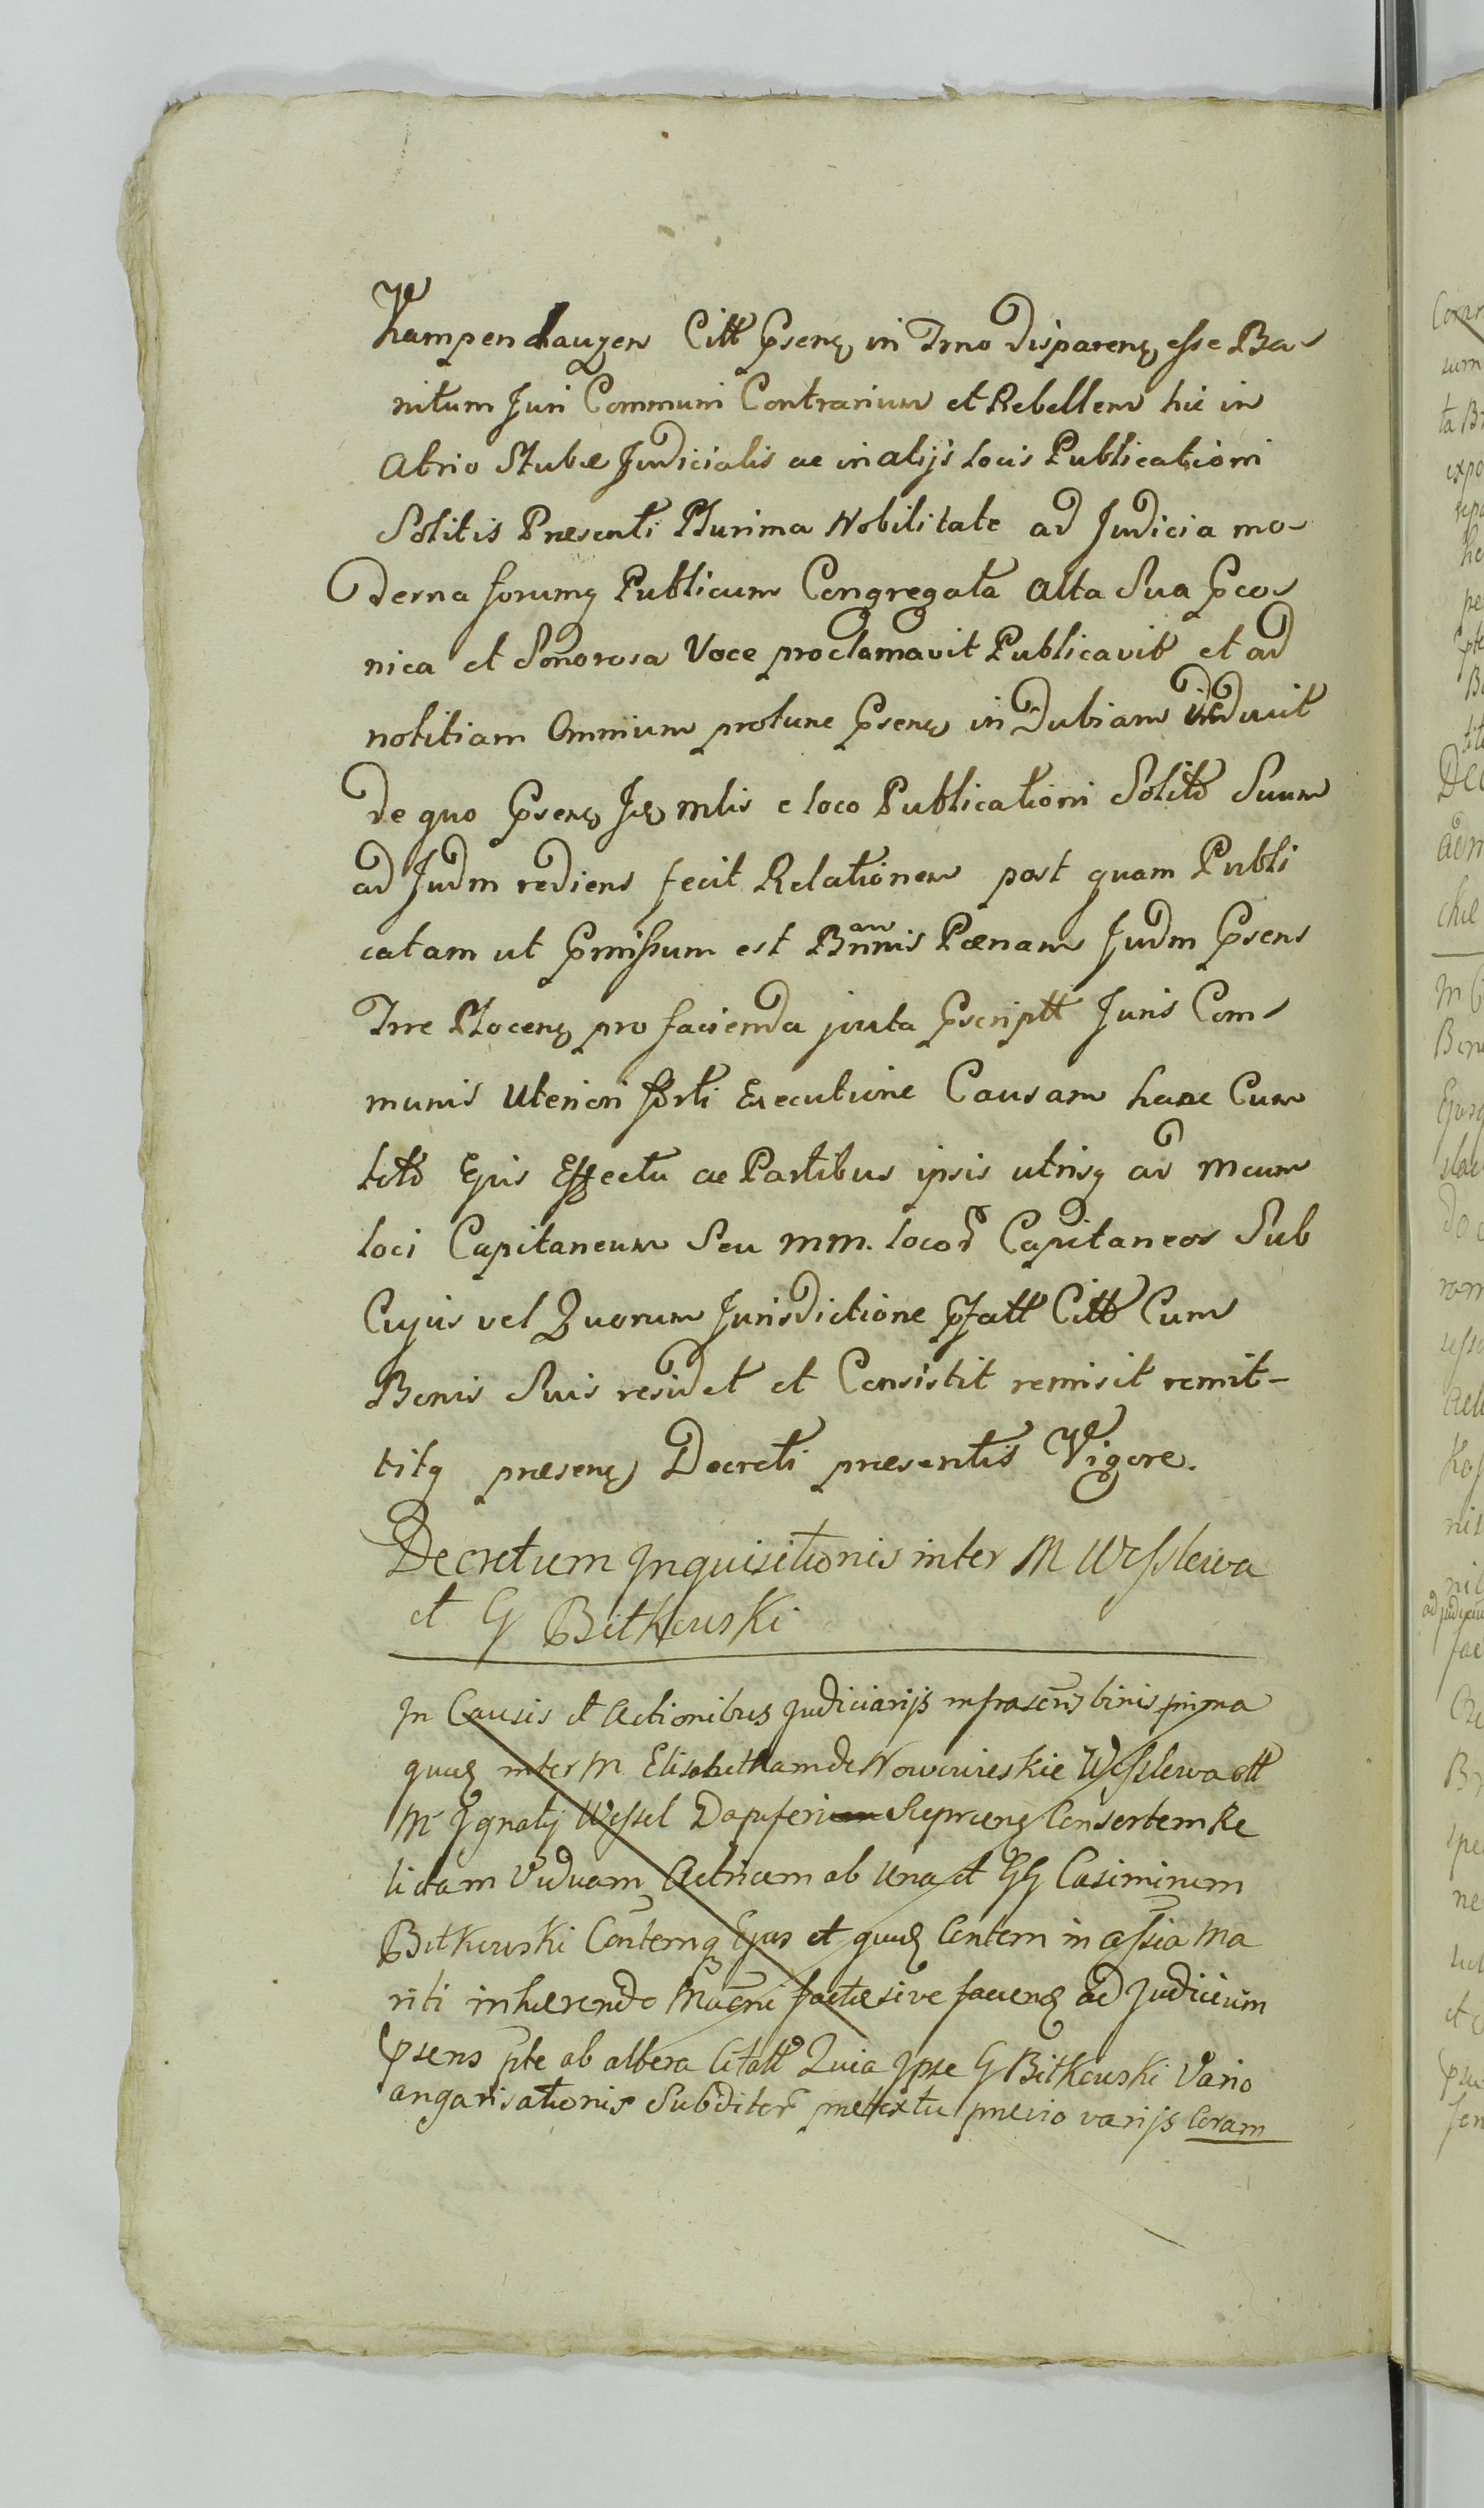 Kampenhauzen Citt Psens in Trno disparens esse Ba-
nitum Juri Communi Contrarium et Rebellem hic in
Atrio Stubæ Judicialis ac in alijs locis Publicationi
Solitis Præsenti Plurima Nobilitate ad Judicia mo-
derna forumq Publicum Congregata alta Sua Pco-
nica et Sonorosa Voce proclamavit Publicavit et ad
notitiam Omnium protunc Psens in Dubiam deduxit
de quo Psens mlis e loco Publicationi Solito Suum
ad Judm rediens fecit Relationem post quam Publi
catam ut Pmissum est Bannis Pœnam Judm Psens
Trre Plocens pro facienda juxta Pscriptt Juris Com-
munis Ulteriori forti Executione Causam hanc Cum
toto Ejus Effectu ac Partibus ipsis utrisq ad Mcum
loci Capitaneum Seu MM. locor Capitaneos Sub
Cujus vel Quorum Jurisdictione Pfatt Citt Cum
Bonis Suis residet et Consistit remisit remit-
titq præsens Decreti præsentis Vigore.
Decretum Inquisitionis inter M Wesslowa
et G Bitkowski
In Causis et Actionibus judiciarijs infrascris binis prima
quidem inter M Elisabetham de Nowowieskie Wesslowa ott
M Ignatij Wessel Dapiferi Consortem Re
lictam Viduam Actricem ab una et GG Casimirum
Bitkowski Contemq Ejus et quidem Contem in assia Ma
riti inhærendo factæ sive faciens ad Judicium
Psens pte ab altera Citatt Quia Ipse G Bitkowski Vario
angarisationis Subditor prætextu prævio varijs Coram